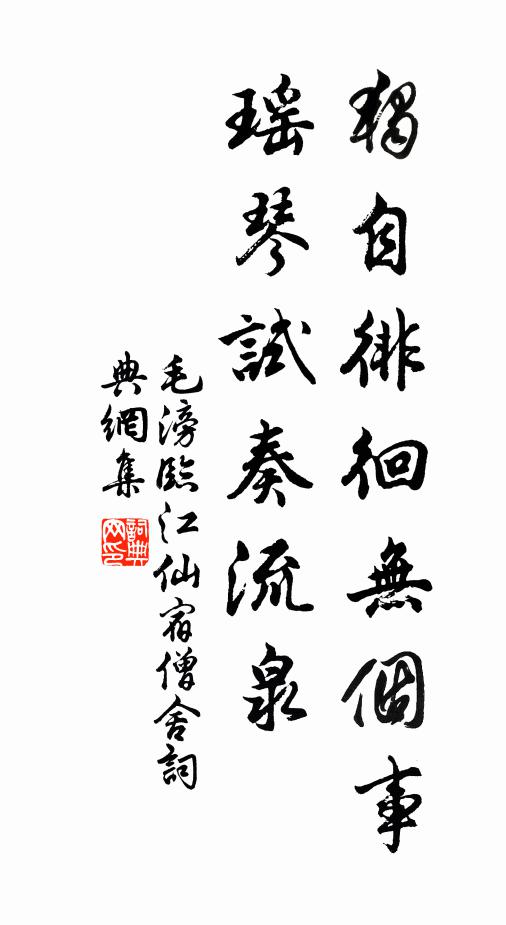 獨自徘徊無個事
瑤琴試奏流泉
毛滂臨江仙宿僧舍詞
典網集
詞典網印